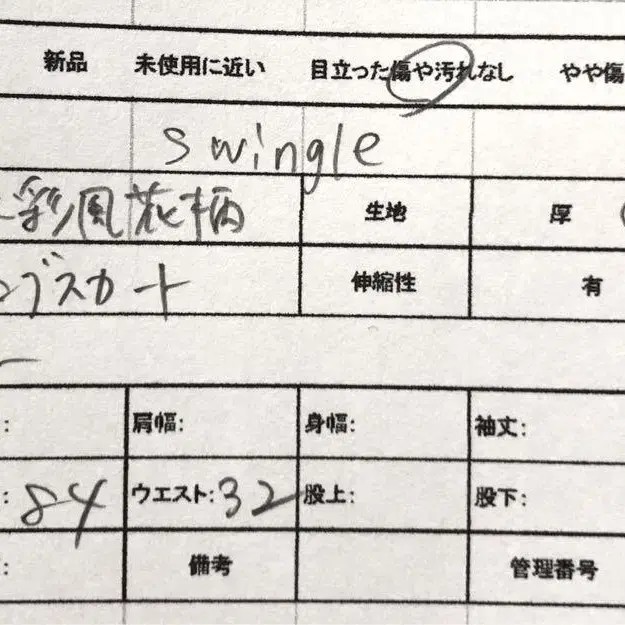 新品 未使用に近い 目立った傷や汚れなし やや傷
swingle
彩風花柄 生地 厚
ングスカート 伸縮性 有
: 肩幅: 身幅: 袖丈:
: 84 ウエスト: 32 股上: 股下:
: 備考 管理番号